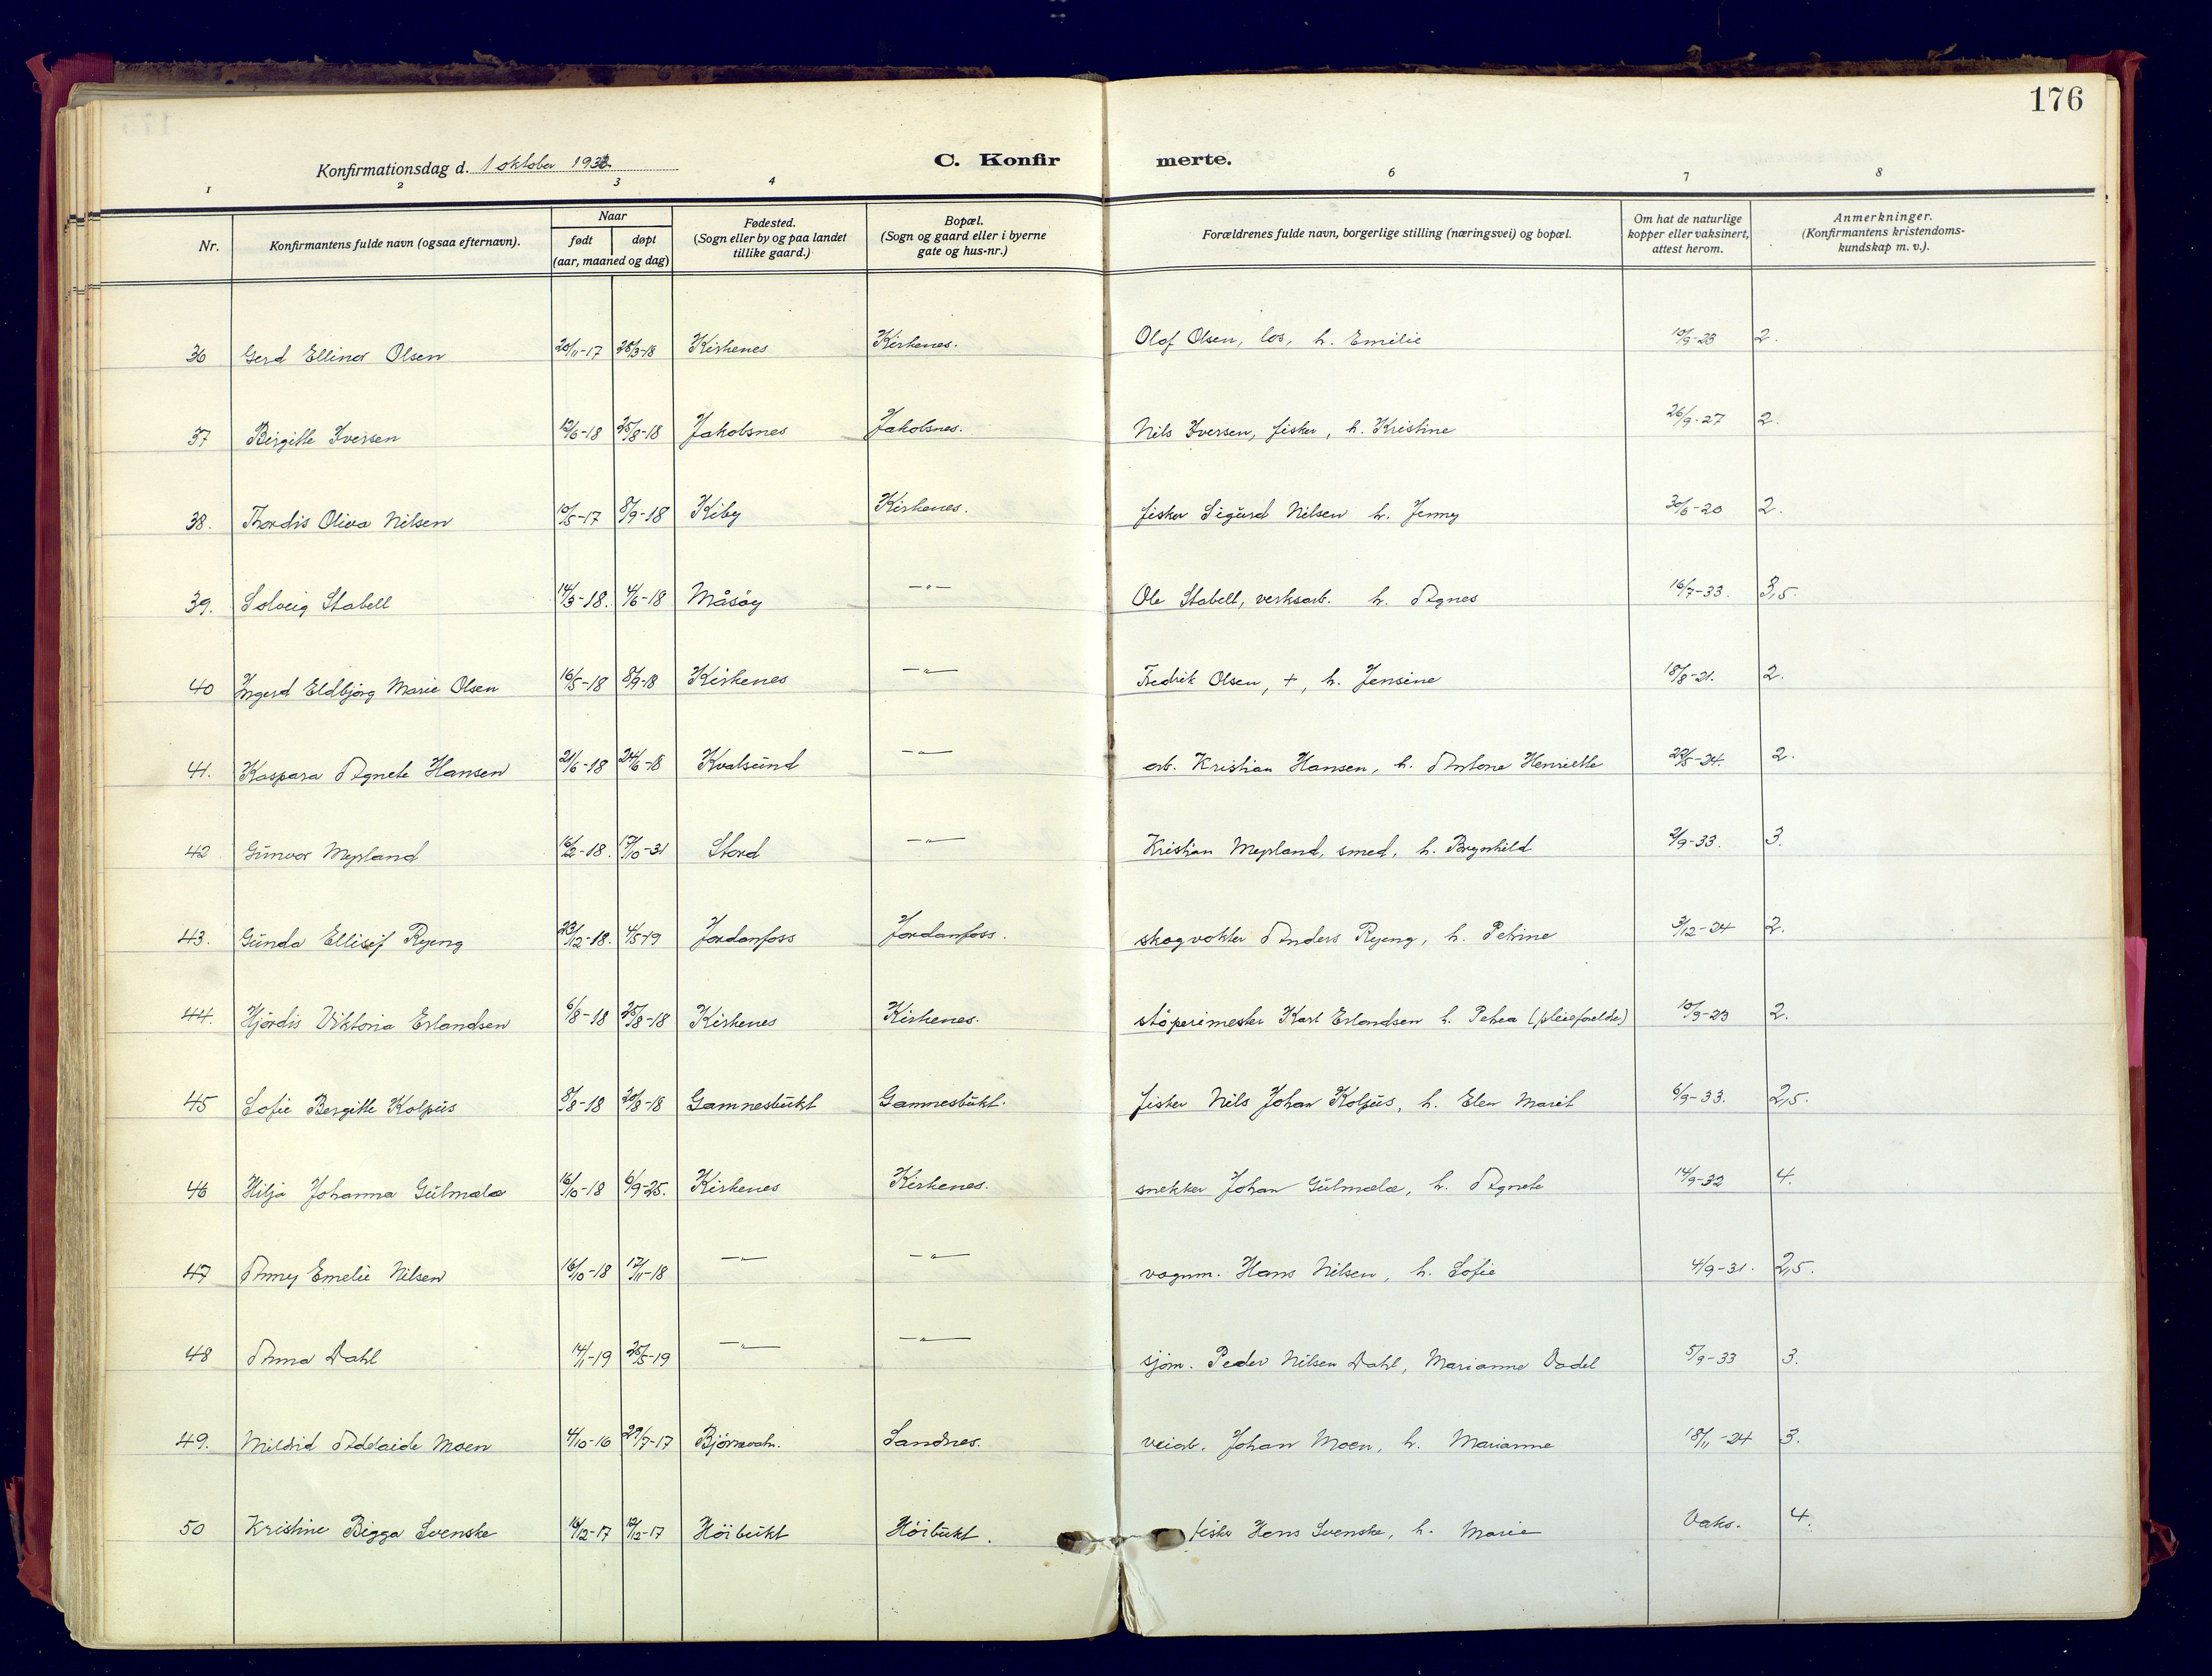 176
Konfirmationsdag d. 1 oktober 193
C. Konfirmerte.
1 2 3 4 6 7 8
Nr. | Konfirmantens fulde navn (ogsaa efternavn). | Naar født døpt (aar, maaned og dag) | Fødested. (Sogn eller by og paa landet tillike gaard.) | Bopæl. (Sogn og gaard eller i byerne gate og hus-nr.) | Forældrenes fulde navn, borgerlige stilling (næringsvei) og bopæl. | Om hat de naturlige kopper eller vaksinert, attest herom. | Anmerkninger. (Konfirmantens kristendomskundskap m. v.).
36 Gerd Ellinor Olsen 20/11-17 28/3-18 Kirkenes Kirkenes. Olof Olsen, los, h. Emilie 10/9-23 2.
37 Birgitte Iversen 12/6-18 25/8-18 Jakobsnes Jakobsnes. Nils Iversen, fisker, h. Kristine 26/9-27 2.
38. Thordis Oliva Nilsen 10/5-17 8/9-18 Kiby Kirkenes. fisker Sigurd Nilsen h. Jenny 30/6-20 2.
39. Solveig Stabell 14/3-18. 4/6-18 Måsøy —"— Ole Stabell, verksarb. h. Agnes 16/7-33. 3,5.
40 Ingerd Eldbjørg Marie Olsen 16/5-18 8/9-18 Kirkenes —"— Fredrik Olsen, +, h. Jensine 18/8-21. 2.
41. Kaspara Agnete Hansen 21/6-18 24/6-18 Kvalsund —"— arb. Kristian Hansen, h. Antone Henriette 22/5-24. 2.
42 Gunvor Mepland 16/2-18. 17/10-31 Stord —"— Kristian Mepland, smed, h. Brynhild 2/9-33. 3.
43. Gunda Ellisif Ryeng 23/12-18. 4/5-19 Jordanfoss Jordanfoss. skogvokter Anders Ryeng, h. Petrine 3/12-24 2.
44. Hjørdis Viktoria Erlandsen 6/8-18 25/8-18 Kirkenes Kirkenes. støperimester Karl Erlandsen h. Petrea (pleieforeldre) 10/9-23 2.
45 Sofie Bergitte Kolpus 8/8-18 20/8-18 Gamnesbukt Gamnesbukt. fisker Nils Johan Kolpus, h. Elen Marit 6/9-33. 2,5.
46 Hilja Johanna Gulmala 16/10-18 6/9-25. Kirkenes Kirkenes. snekker Johan Gulmala, h. Agnete 14/9-32 4.
47 Anny Emelie Nilsen 16/10-18 17/11-18 —"— —"— vognm. Hans Nilsen, h. Sofie 4/9-31. 2,5.
48 Anna Dahl 14/1-19 25/5-19 —"— —"— sjøm. Peder Nilsen Dahl, Marianne Vadel 5/9-33 3.
49. Mildrid Adelaide Moen 4/10-16 29/7-17 Bjørnevatn. Sandnes. veiarb. Johan Moen, h. Marianne 18/11-24 3.
50 Kristine Bigga Svenske 16/12-17 19/12-17 Høibukt Høibukt. fisker Hans Svenske, h. Marie Vaks. 4.